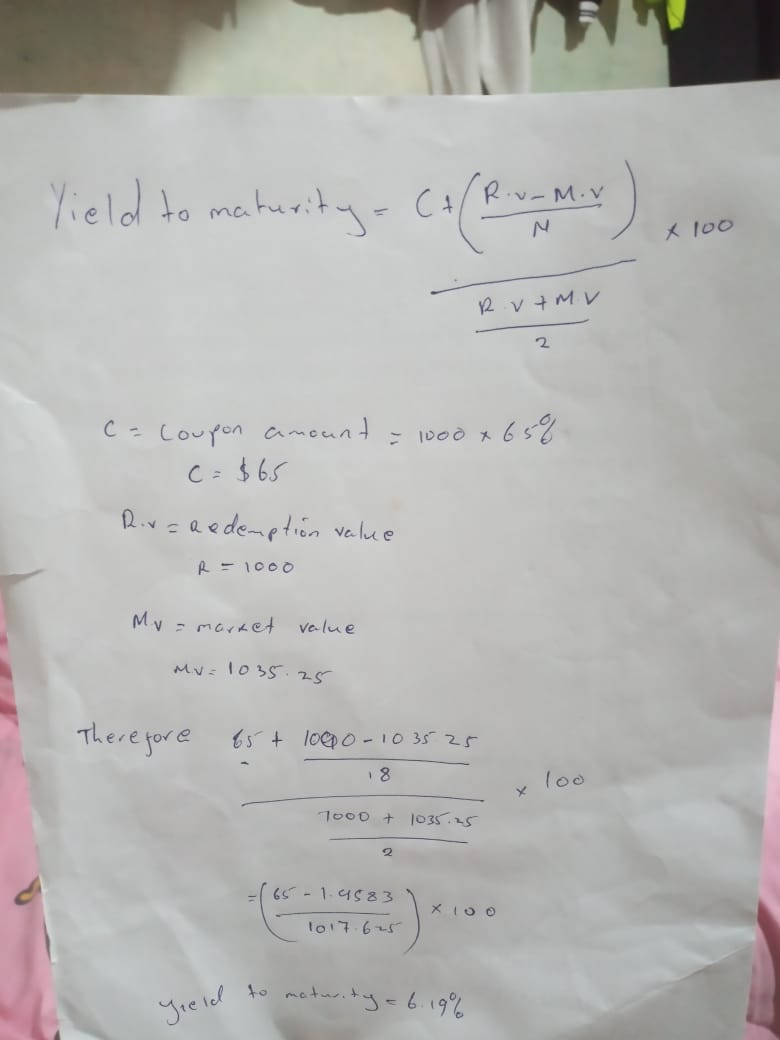 Yield to maturity = C + ( R.v - M.v / N ) x 100
R.v + M.v
2
C = Coupon amount = 1000 x 65%
C = $65
R.v = Redemption value
R = 1000
M.v = market value
M.v = 1035.25
Therefore 65 + 1000 - 1035 25
18
x 100
1000 + 1035.25
2
= ( 65 - 1.9583 / 1017.625 ) x 100
yield to maturity = 6.19%